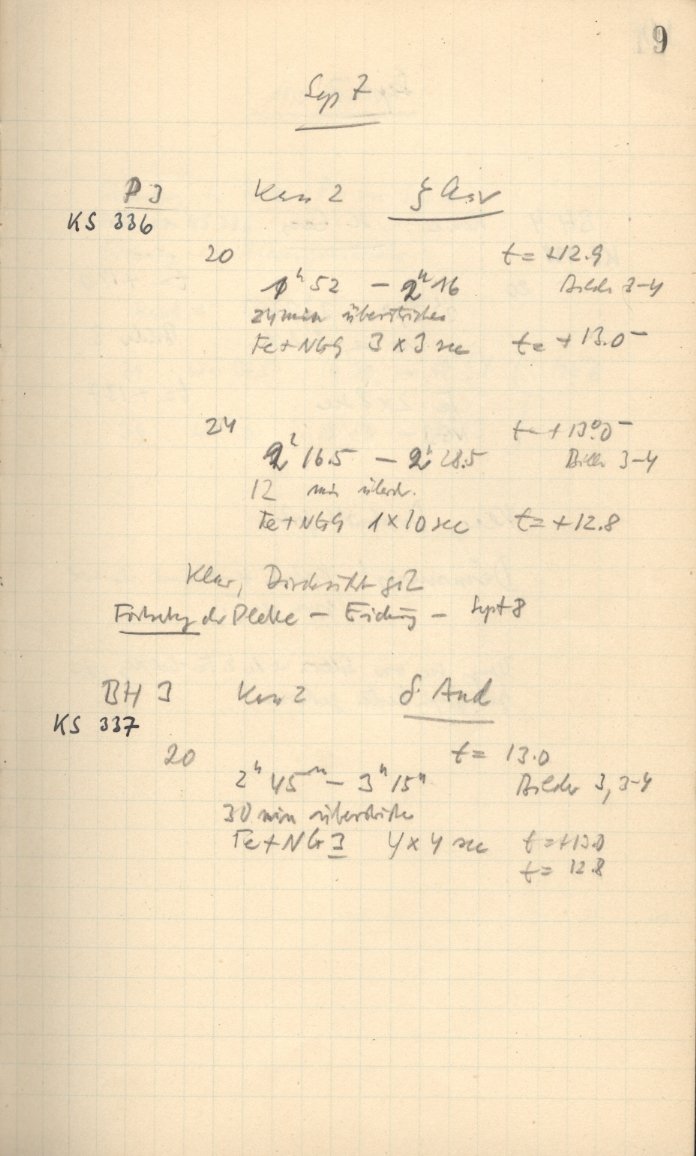 9
Sep 7
P 3 Kam 2 ξ Aqr
KS 336
20 t = +12.9
1h 52 – 2h 16 Bilder 3-4
24 min überstrichen
Fe+NG9 3 x 3 sec t = +13.0
24 t = +13.0
2h 16.5 – 2h 28.5 Bilder 3-4
12 min überstr.
Fe+NG9 1 x 10 sec t = +12.8
Klar, Durchsicht gut
der Platte – – Sept 8
BH 3 Kam 2 δ And
KS 337
20 t = 13.0
2h 45m – 3h 15m Bilder 3, 3-4
30 min überstrichen
Fe+NG 3 4 x 4 sec t = +13.0
t = 12.8